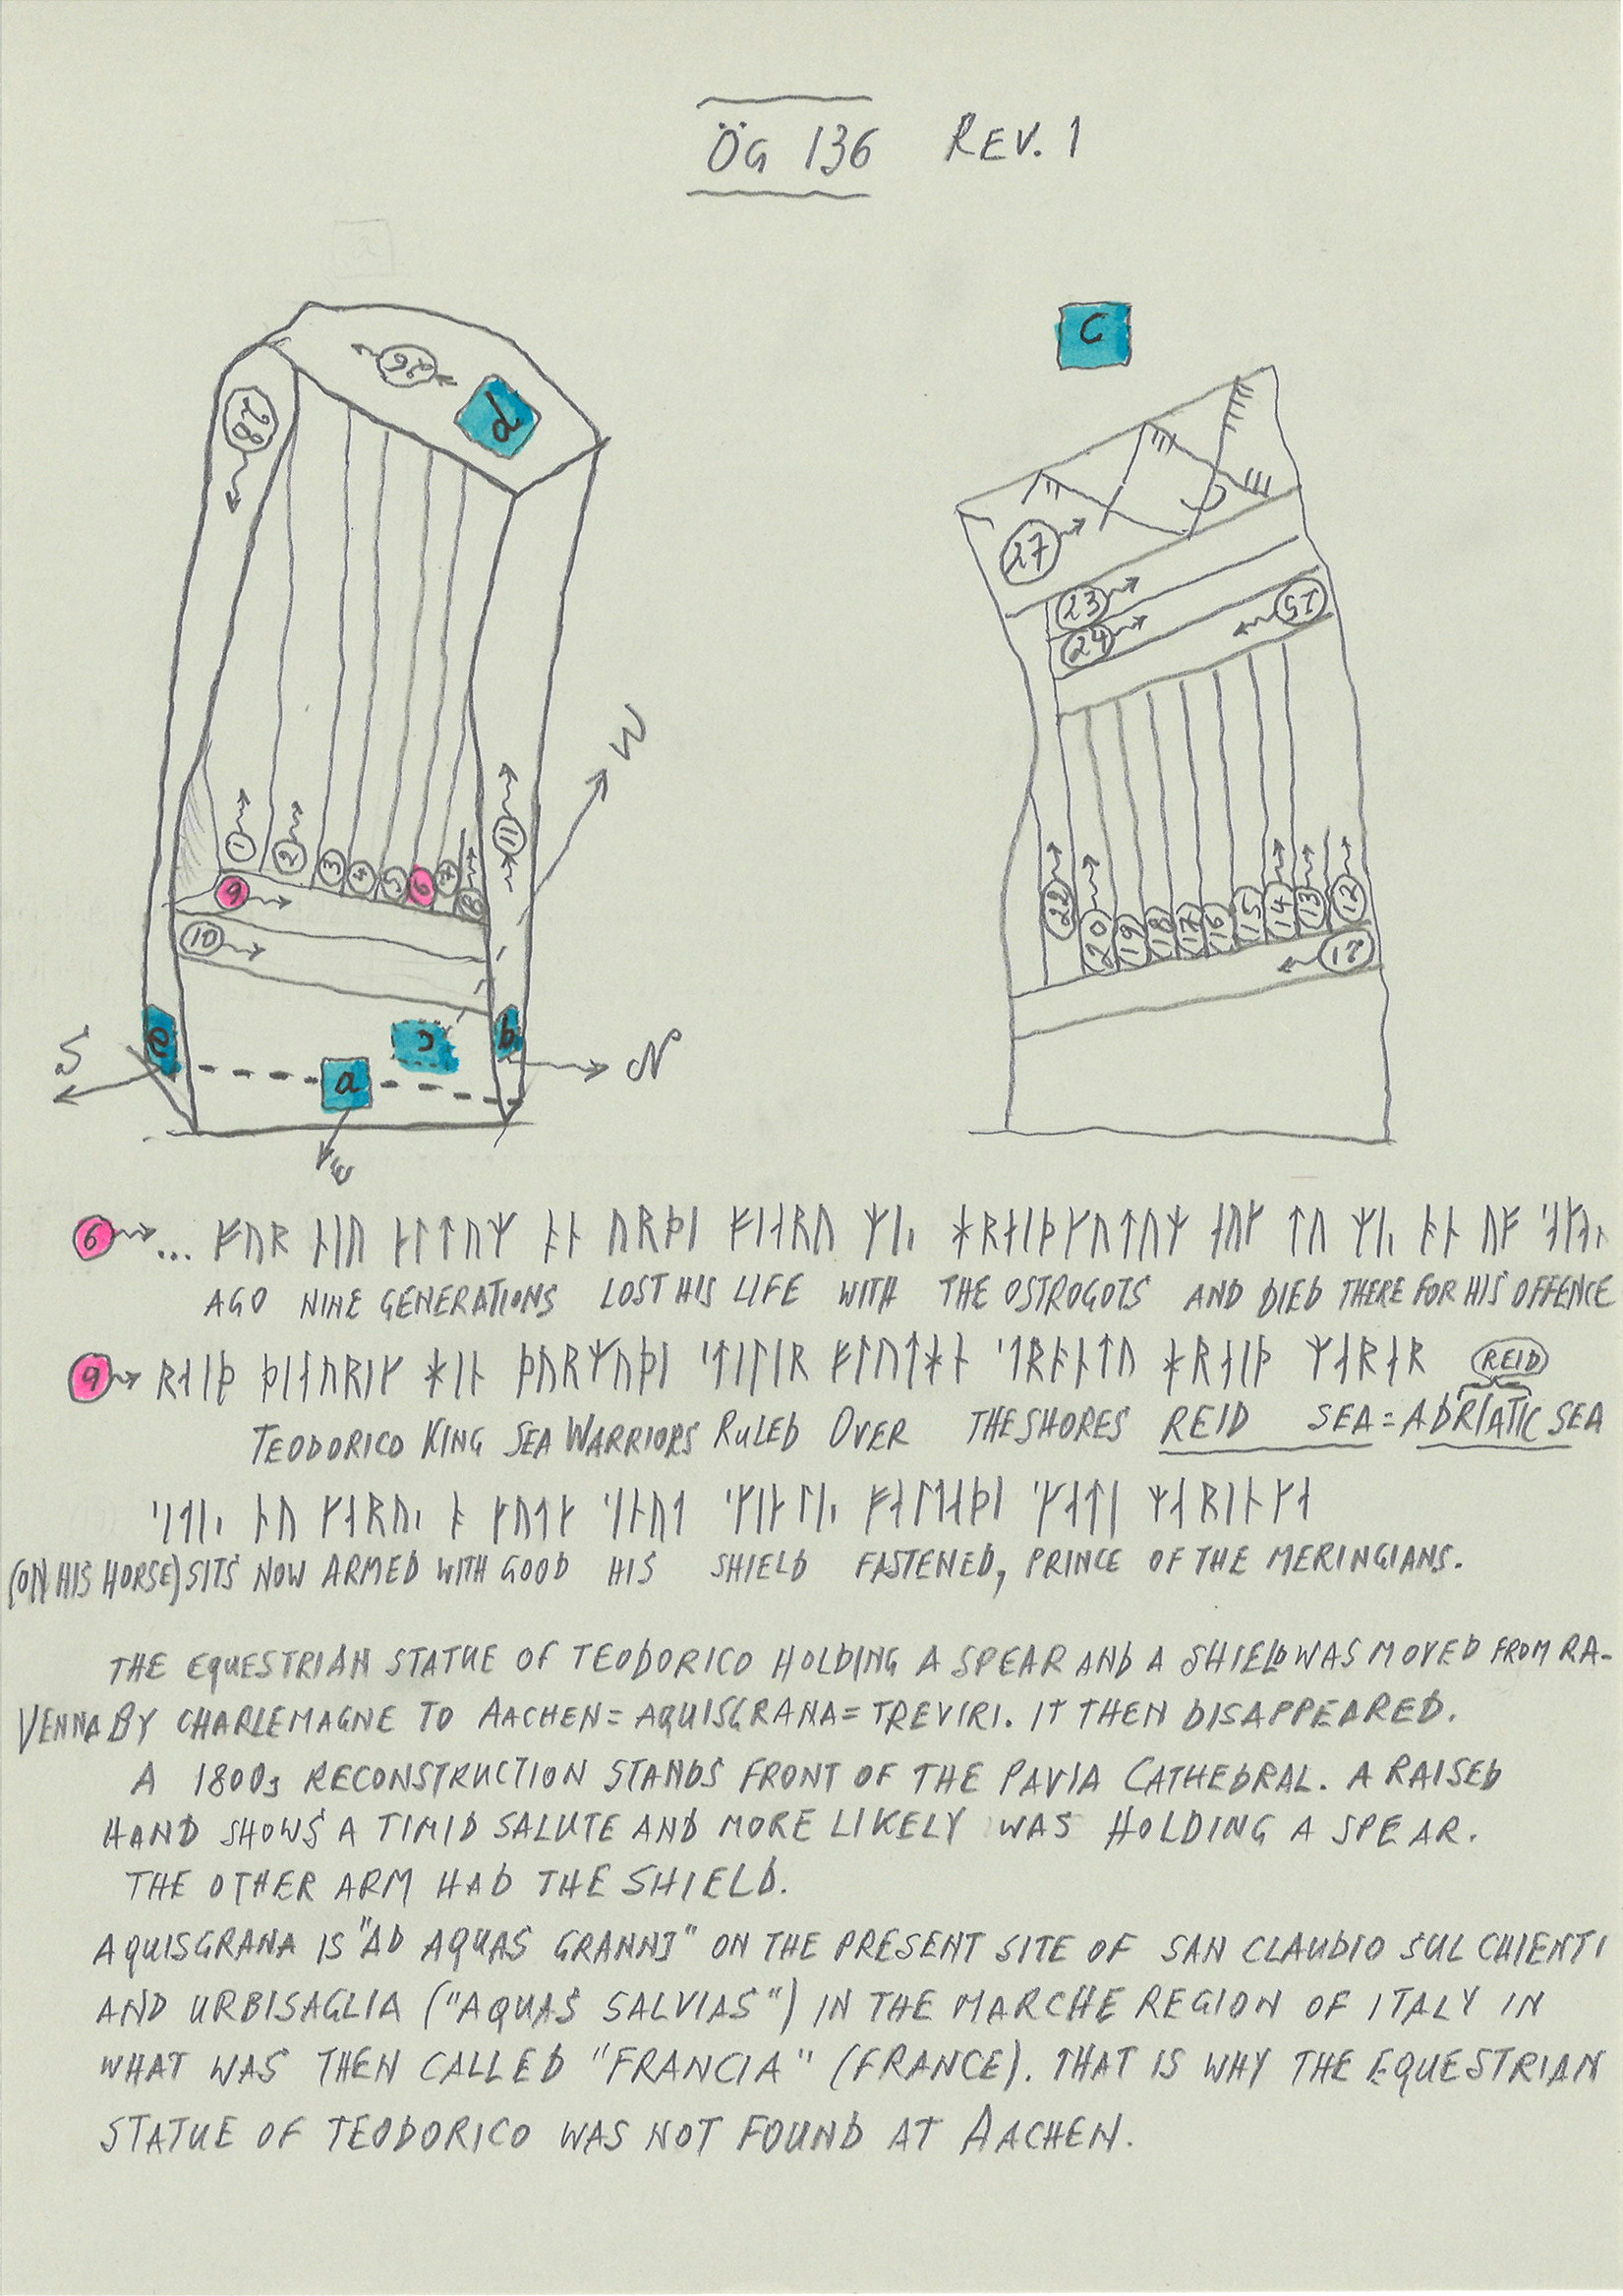 ÖG 136 REV. 1
C
26
d
28
27
23
24
25
W
1 2 3 4 5 6 7 8 11
9
10
22 20 19 18 17 16 15 14 13 12
21
e
c
b
a
S
N
E
6 ... ᚠᚢᚱ ᚾᛁᚢ ᛆᛚᛏᚢᛘ ᚬᚾ ᚢᚱᚦᛁ ᚠᛁᛆᚱᚢ ᛘᛁᛧ ᚼᚱᛆᛁᚦᚴᚢᛏᚢᛘ ᛆᚢᚴ ᛏᚢ ᛘᛁᛧ ᚬᚾ ᚢᚠ ᛌᛆᚴᛆᛧ
AGO NINE GENERATIONS LOST HIS LIFE WITH THE OSTROGOTS AND DIED THERE FOR HIS OFFENCE
9 ᚱᛆᛁᚦ ᚦᛁᛆᚢᚱᛁᚴ ᚼᛁᚾ ᚦᚢᚱᛘᚢᚦᛁ ᛌᛏᛁᛚᛁᚱ ᚠᛚᚢᛏᚼᚾ ᛌᛐᚱᚬᚾᛏᚢ ᚼᚱᛆᛁᚦ ᛘᛆᚱᛆᚱ REID
TEODORICO KING SEA WARRIORS RULED OVER THE SHORES REID SEA = ADRIATIC SEA
ᛌᛁᛐᛁᛧ ᚾᚢ ᚴᛆᚱᚢᛧ ᚬ ᚴᚢᛐᛆ ᛌᛁᚾᚢᛐ
(ON HIS HORSE) SITS NOW ARMED WITH GOOD HIS SHIELD FASTENED, PRINCE OF THE MERINGIANS.
THE EQUESTRIAN STATUE OF TEODORICO HOLDING A SPEAR AND A SHIELD WAS MOVED FROM RA-
VENNA BY CHARLEMAGNE TO AACHEN = AQUISGRANA = TREVIRI. IT THEN DISAPPEARED.
A 1800s RECONSTRUCTION STANDS FRONT OF THE PAVIA CATHEDRAL. A RAISED
HAND SHOWS A TIMID SALUTE AND MORE LIKELY WAS HOLDING A SPEAR.
THE OTHER ARM HAD THE SHIELD.
AQUISGRANA IS "AD AQUAS GRANNI" ON THE PRESENT SITE OF SAN CLAUDIO SUL CHIENTI
AND URBISAGLIA ("AQUAS SALVIAS") IN THE MARCHE REGION OF ITALY IN
WHAT WAS THEN CALLED "FRANCIA" (FRANCE). THAT IS WHY THE EQUESTRIAN
STATUE OF TEODORICO WAS NOT FOUND AT AACHEN.